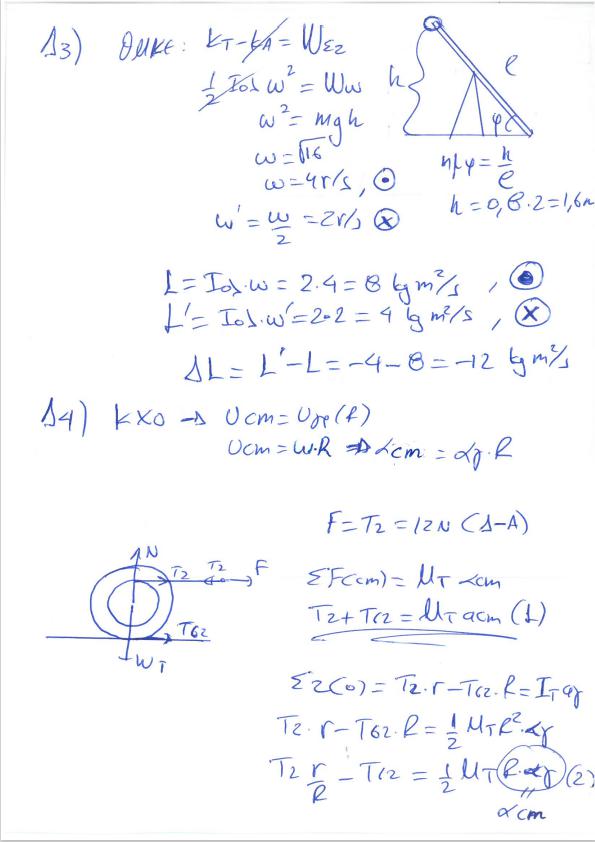 Δ3) ΘΜΚΕ: Κτ - Κα = WΣΖ
1/2 Iολ ω² = Ww
ω² = mgh
ω = √16
ω = 4r/s, ⊙
ω' = ω/2 = 2r/s ⊗
h
l
φ
ημφ = h/l
h = 0,8·2 = 1,6m
L = Iολ·ω = 2·4 = 8 kg m²/s , ⊙
L' = Iολ·ω' = 2·2 = 4 kg m²/s , ⊗
ΔL = L' - L = -4 - 8 = -12 kg m²/s
Δ4) ΚΧΟ → Ucm = Uγρ(f)
Ucm = ω·R ⇒ αcm = αγ·R
F = T2 = 12N (Δ-Α)
N
T2 T2 F
Tσ2
WT
ΣF(cm) = MT αcm
T2 + Tσ2 = MT αcm (1)
Στ(ο) = T2·r - Tσ2·R = IT αγ
T2·r - Tσ2·R = 1/2 MT R²·αγ
T2 r/R - Tσ2 = 1/2 MT R·αγ (2)
=
αcm